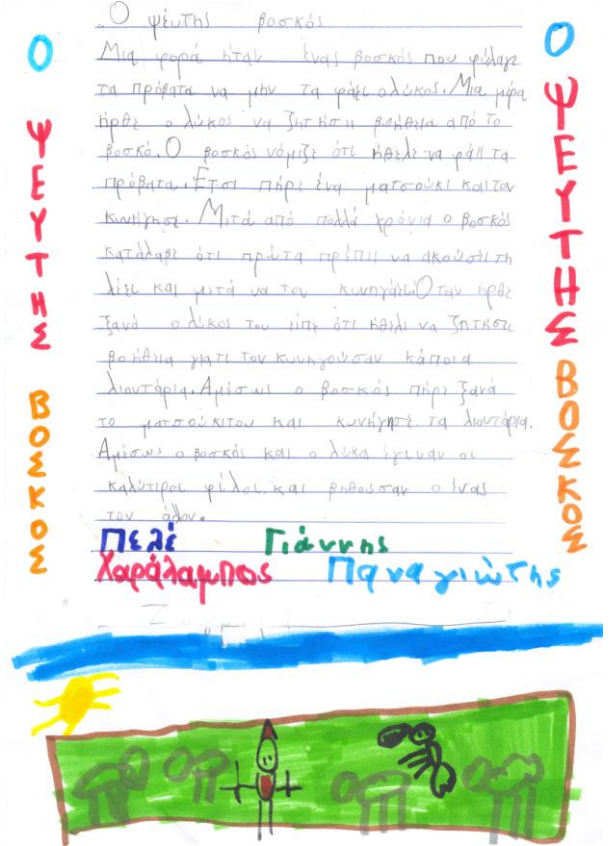 Ο ψεύτης βοσκός
Μια φορά ήταν ένας βοσκός που φύλαγε
τα πρόβατα να μην τα φάει ο λύκος. Μια μέρα
ήρθε ο λύκος να ζητήσει βοήθεια από το
βοσκό. Ο βοσκός νόμιζε ότι ήθελε να φάει τα
πρόβατα. Έτσι πήρε ένα ματσούκι και τον
κυνήγησε. Μετά από πολλά χρόνια ο βοσκός
κατάλαβε ότι πρώτα πρέπει να ακούσει τη
λέει και μετά να τον κυνηγάει Όταν ήρθε
ξανά ο λύκος του είπε ότι ήθελε να ζητήσει
βοήθεια γιατι τον κυνηγούσαν κάποια
λιοντάρια. Αμέσως ο βοσκός πήρε ξανά
το ματσούκι του και κυνήγησε τα λιοντάρια.
Αμέσως ο βοσκός και ο λύκος έγιναν οι
καλύτεροι φίλοι και βοηθούσαν ο ένας
τον άλλον.
Πελέ Γιάννης
Χαράλαμπος Παναγιώτης
Ο ΨΕΥΤΗΣ ΒΟΣΚΟΣ
Ο ΨΕΥΤΗΣ ΒΟΣΚΟΣ